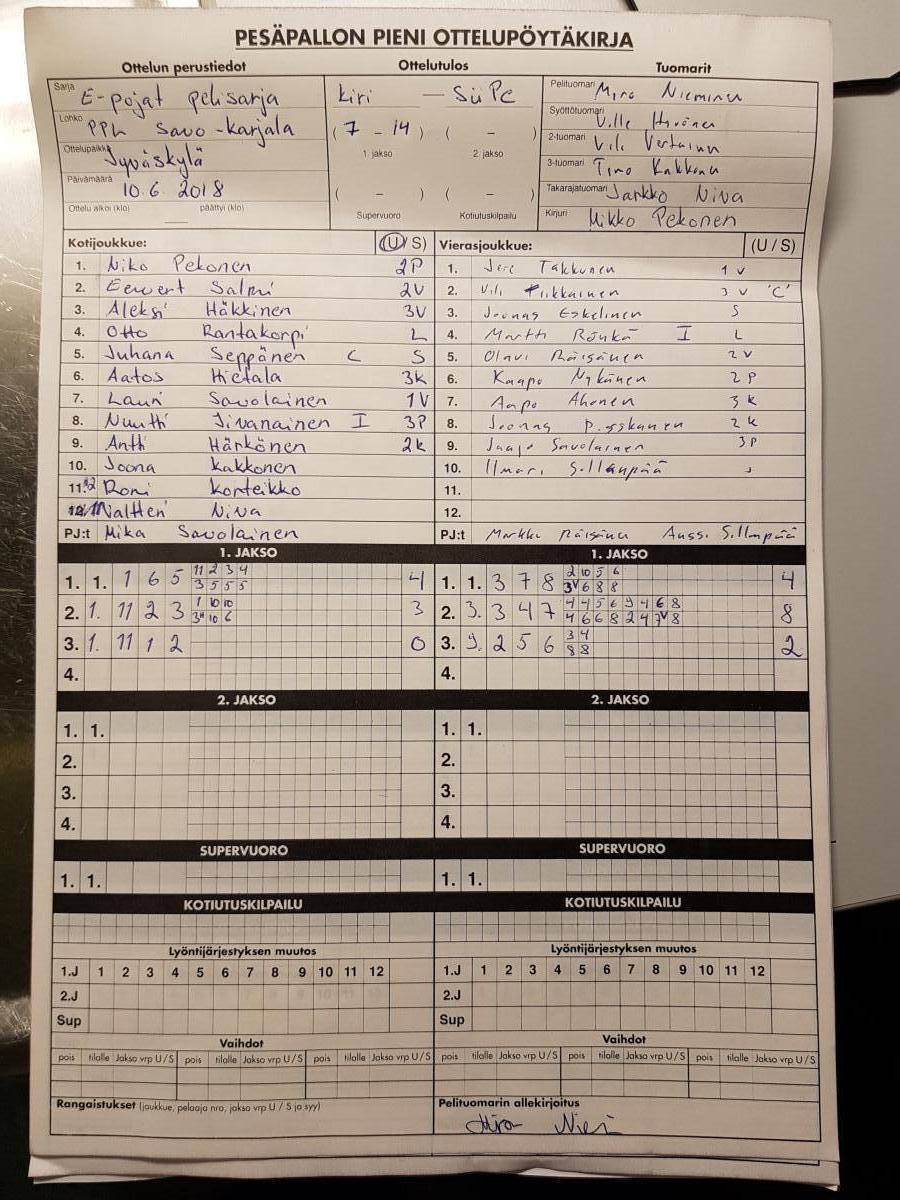 PESÄPALLON PIENI OTTELUPÖYTÄKIRJA
Ottelun perustiedot Ottelutulos Tuomarit
Sarja E-pojat pelisarja
Lohko PPL Savo-Karjala
Ottelupaikka Jyväskylä
Päivämäärä 10.6 2018
Ottelu alkoi (klo) päättyi (klo)
Kiri — SiiPe
(7 - 14) ( - )
1. jakso 2. jakso
( - ) ( - )
Supervuoro Kotiutuskilpailu
Pelituomari Miro Nieminen
Syöttötuomari Ville
2-tuomari Vili
3-tuomari Timo Kakkonen
Takarajatuomari Jarkko Niva
Kirjuri Mikko Pekonen
Kotijoukkue: (U/S)
1. Niko Pekonen 2P
2. Eewert Salmi 2V
3. Aleksi Häkkinen 3V
4. Otto Rantakorpi L
5. Juhana Seppänen C S
6. Aatos Hietala 3k
7. Lauri Savolainen 1V
8. Nuutti Iivanainen I 3P
9. Antti Härkönen 2k
10. Joona Kakkonen
11. Roni Konteikko
12. Waltteri Niva
PJ:t Mika Savolainen
Vierasjoukkue: (U/S)
1. Jere Takkunen 1 V
2. Vili Piikkainen 3 V 'C'
3. Joonas Eskelinen S
4. Martti Rönkä I L
5. Olavi Räisänen 2 V
6. Kaapo Nykänen 2 P
7. Aapo Ahonen 3 k
8. Joonas 2 k
9. Jaajo Savolainen 3P
10. Ilmari Sillanpää J
11.
12.
PJ:t Markku Räisänen Anssi Sillanpää
1. JAKSO
1. 1. 1 6 5 11 2 3 4 4
3 5 5 5
2. 1. 11 2 3 1 10 10 3
3" 10 6
3. 1. 11 1 2 0
4.
1. JAKSO
1. 1. 3 7 8 2 10 5 6 4
3V 6 8 8
2. 9. 3 4 7 4 4 5 6 9 4 6 8 8
4 6 6 8 2 4 7V 8
3. 9. 2 5 6 3 4 2
8 8
4.
2. JAKSO
1. 1.
2.
3.
4.
2. JAKSO
1. 1.
2.
3.
4.
SUPERVUORO
1. 1.
SUPERVUORO
1. 1.
KOTIUTUSKILPAILU
KOTIUTUSKILPAILU
Lyöntijärjestyksen muutos
1.J 1 2 3 4 5 6 7 8 9 10 11 12
2.J
Sup
Lyöntijärjestyksen muutos
1.J 1 2 3 4 5 6 7 8 9 10 11 12
2.J
Sup
Vaihdot
pois tilalle Jakso vrp U/S pois tilalle Jakso vrp U/S pois tilalle Jakso vrp U/S
Vaihdot
pois tilalle Jakso vrp U/S pois tilalle Jakso vrp U/S pois tilalle Jakso vrp U/S
Rangaistukset (joukkue, pelaaja nro, jakso vrp U / S ja syy)
Pelituomarin allekirjoitus